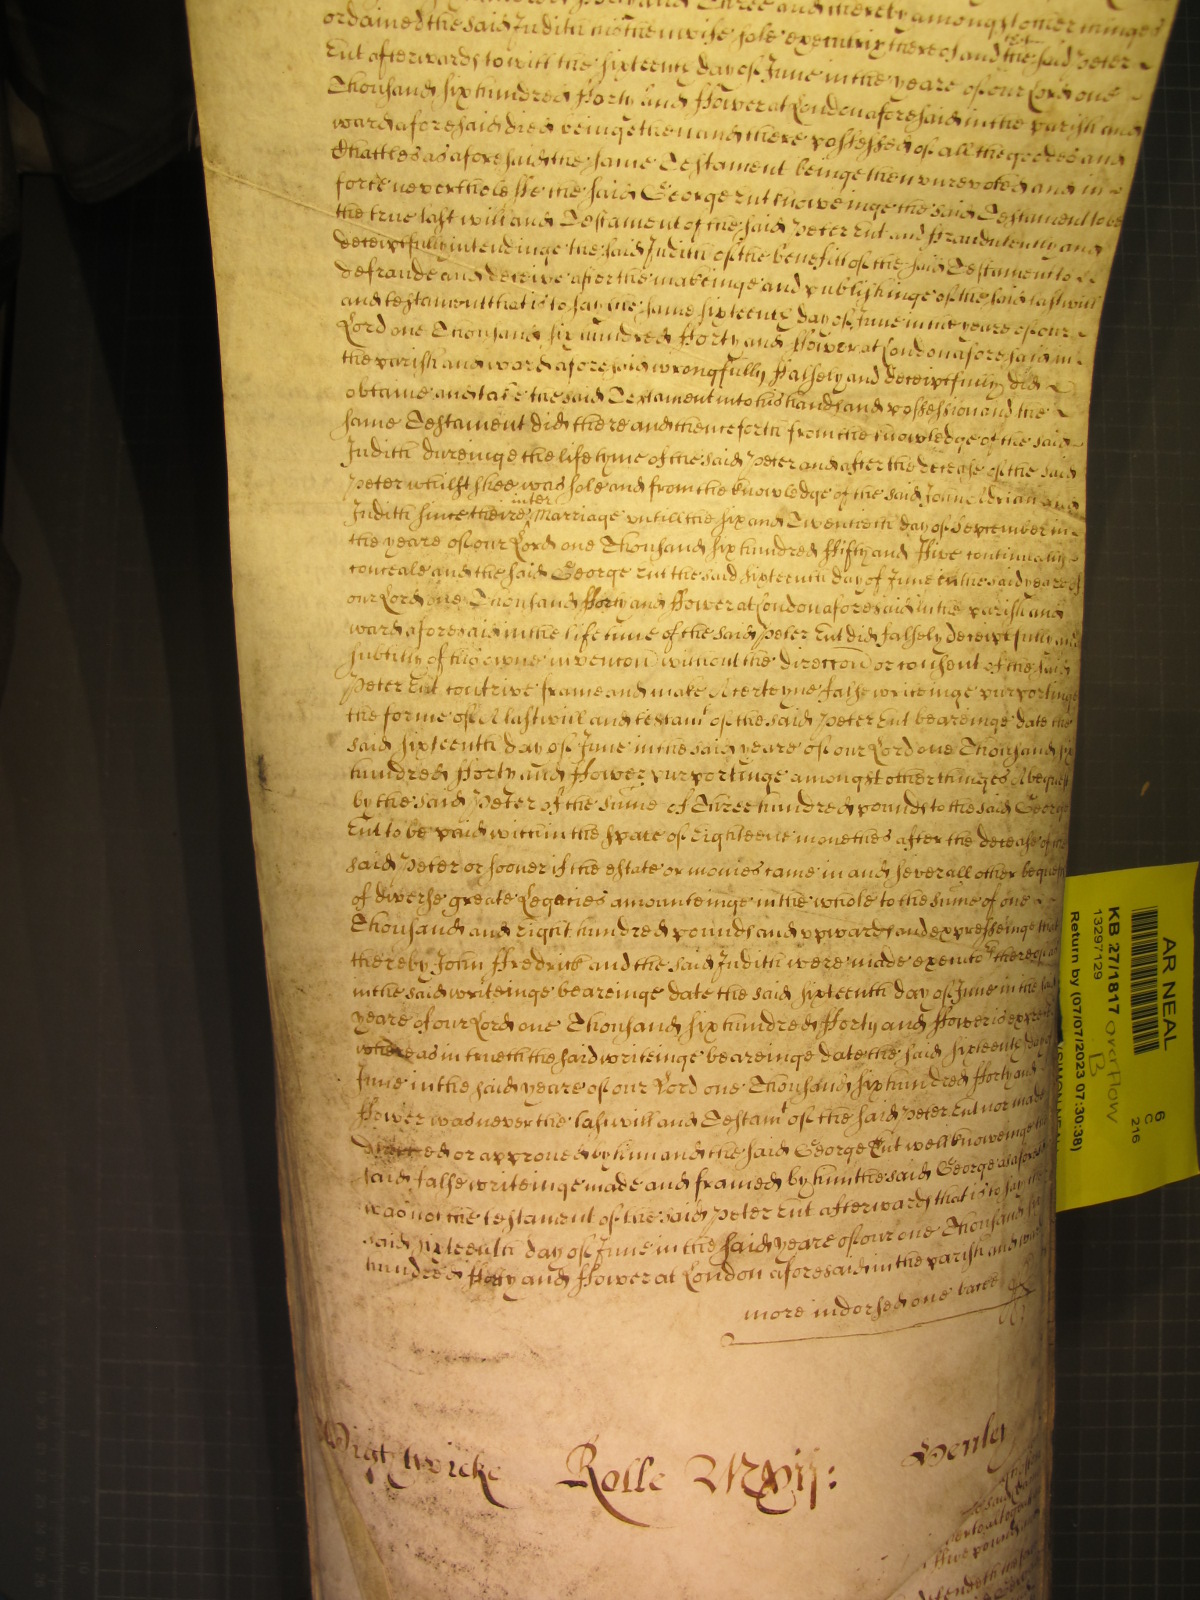 Forty and Three and thereby amongst other thinges
ordained the said Judith mother wife sole executrix thereof and the said Peter
Lut afterwards to witt the sixteenth day of June in the yeare of our Lord one
Thousand six hundred Forty and Fower at London aforesaid in the parish and
ward aforesaid died beinge then and there possessed of all the goodes and
Chattles as aforesaid the same Testament beinge then unrevoked and in
force neverthelesse the said George Lut knoweinge the said Testament to be
the true last will and Testament of the said Peter Lut and fraudulently and
deceiptfully intendinge the said Judith of the benefitt of the said Testament to
defraude and deceive after the makeinge and publishinge of the said last will
and testament that is to say the same sixteenth day of June in the yeare of our
Lord one Thousand six hundred Forty and Fower at London aforesaid in
the parish and ward aforesaid wrongfully Falsely and deceiptfully did
obtaine and take the said Testament into his hands and possession and the
same Testament did there and thenceforth from the knowledge of the said
Judith dureinge the life tyme of the said Peter and after the decease of the said
Peter whilst shee was sole and from the knowledge of the said John Adrian and
Judith since theire inter Marriage untill the six and Twentieth day of September in
the yeare of our Lord one Thousand six hundred Fifty and Five continually
conceale and the said George Lut the said sixteenth day of June in the said yeare of
our Lord one Thousand Forty and Fower at London aforesaid in the parish and
ward aforesaid in the life time of the said Peter Lut did falsely deceiptfully and
subtilly of his owne invencon without the direccon or consent of the said
Peter Lut contrive frame and make A certeyne false writeinge purportinge
the forme of A last will and testamt of the said Peter Lut beareinge date the
said sixteenth day of June in the said yeare of our Lord one Thousand six
hundred Forty and Fower purportinge amongst other thinges A bequest
by the said Peter of the sume of Three hundred pounds to the said George
Lut to be paid within the space of Eighteene monethes after the decease of the
said Peter or sooner if the estate or monies came in and severall other bequests
of diverse greate Legacies amounteinge in the whole to the sume of one
Thousand and Eight hundred pounds and upwards and expresseinge that
thereby John Fredrick and the said Judith were made executors thereof as
in the said writeinge beareinge date the said sixteenth day of June in the said
yeare of our Lord one Thousand six hundred Forty and Fower is expressed
whereas in trueth the said writeinge beareinge date the said sixteenth day of
June in the said yeare of our Lord one Thousand six hundred Forty and
Fower was never the last will and Testamt of the said Peter Lut nor made
directed or approved by him and the said George Lut well knoweinge the
said false writeinge made and framed by him the said George as aforesaid
was not the testament of the said Peter Lut afterwards that is to say the
said sixteenth day of June in the said yeare of our one Thousand six
hundred Forty and Fower at London aforesaid in the parish and ward
more indorsed one backe
Wightwicke Rolle Mxvij: Henley
the said
Five pounds
AR NEAL
KB 27/1817 overflow
B
13297129
Return by (07/07/2023 07:30:38)
6
C
216